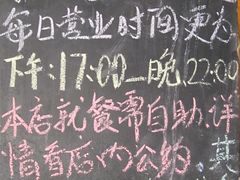 每日营业时间更为
下午:17:00—晚22:00
本店就餐需自助,详
情看店内公约,其